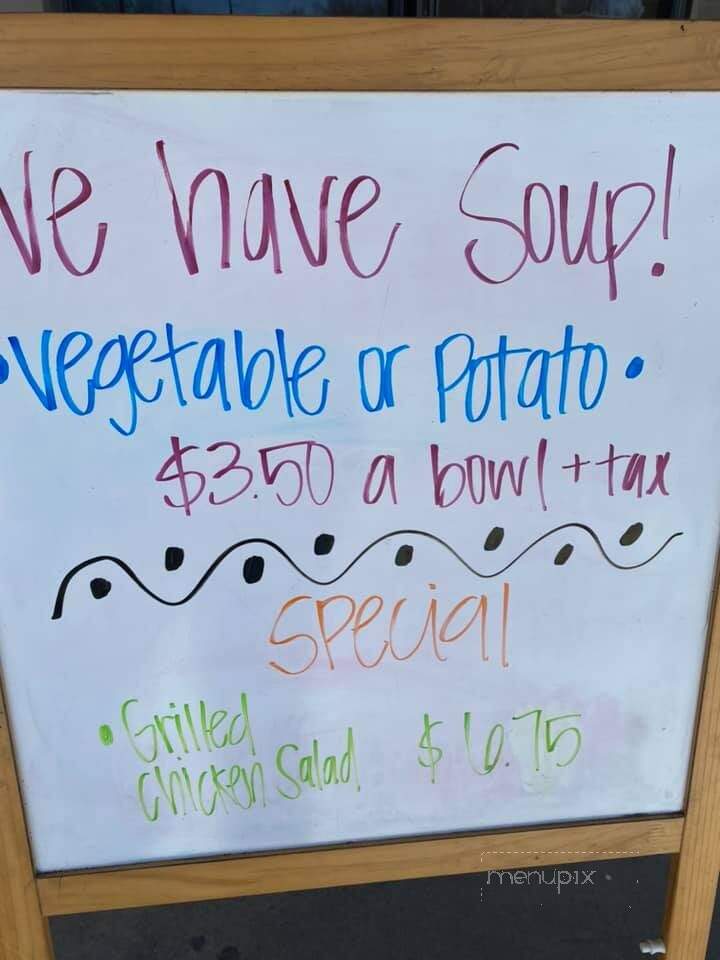 We have Soup!
• Vegetable or Potato •
$3.50 a bowl + tax
Special
• Grilled
Chicken Salad $6.75
menupix